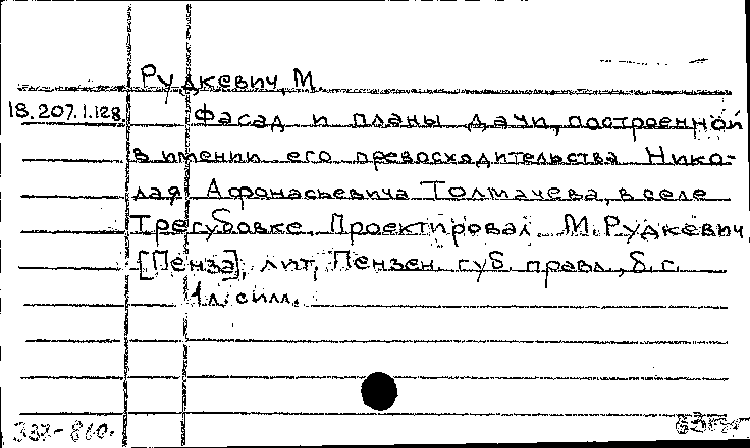 Рудкевич, М.
18.207.1.128. Фасад и планы дачи, построенной
в имении его превосходительства Нико-
лая Афонасьевича Толмачева, в селе
Трегубовке. Проектировал М. Рудкевич
[Пенза], лит. Пензен. губ. правл., б. г.
1 л. илл.
337-860.